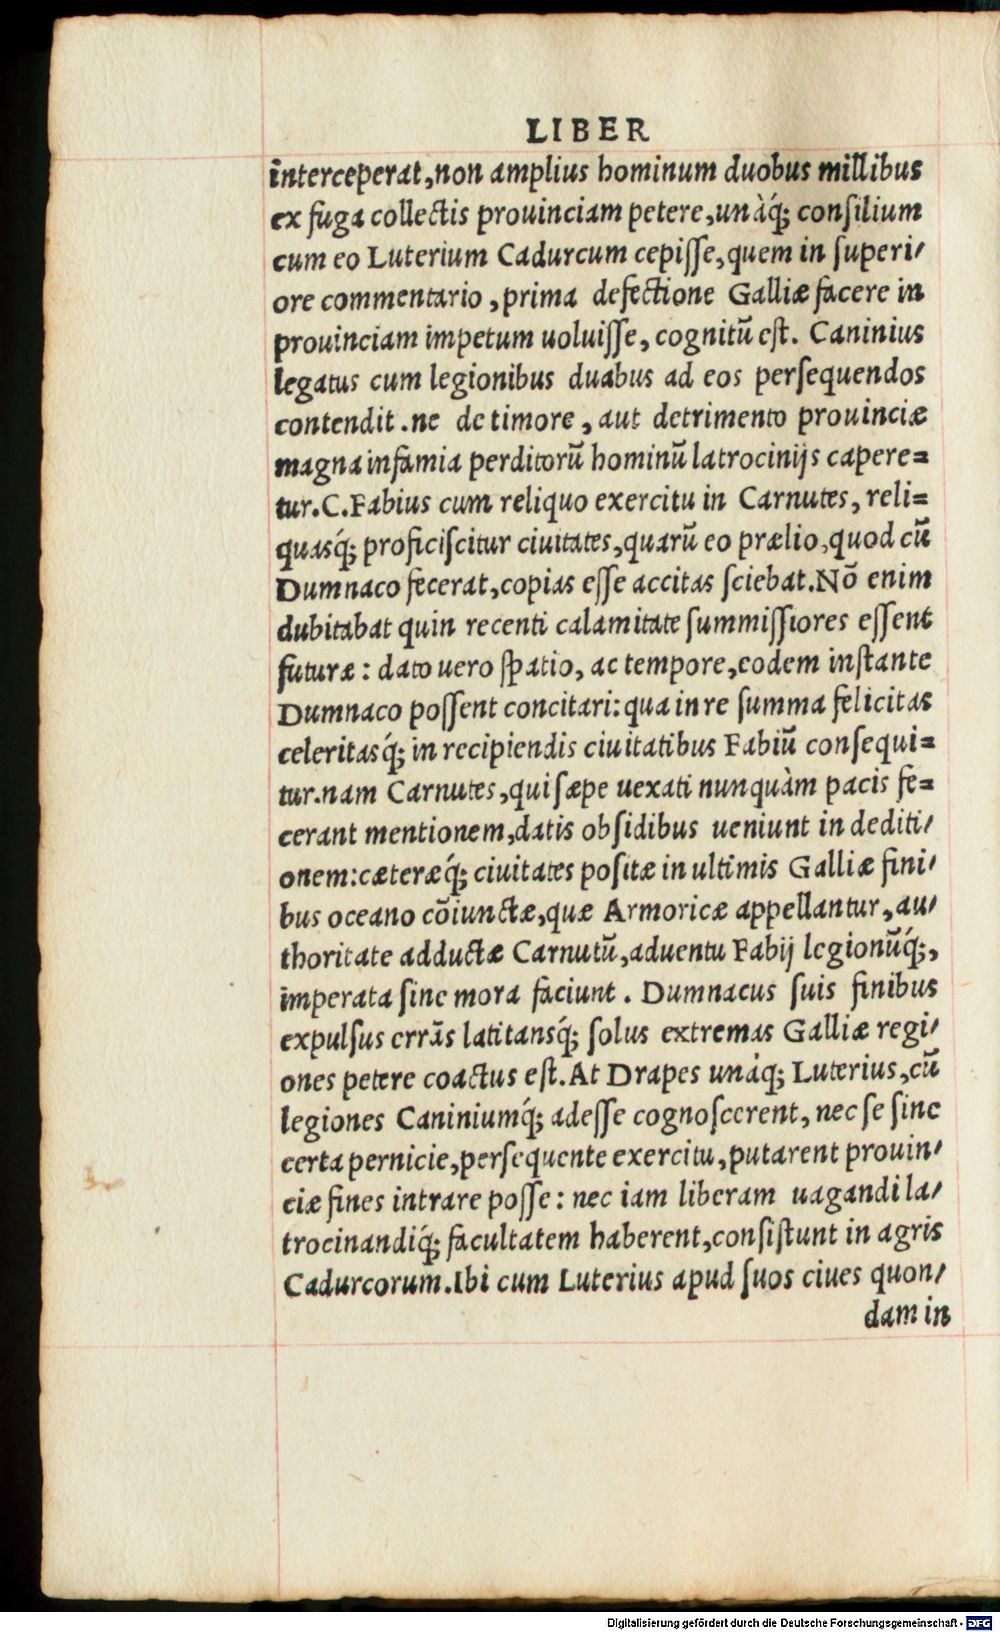 LIBER
interceperat, non amplius hominum duobus millibus
ex fuga collectis prouinciam petere, unàq́; consilium
cum eo Luterium Cadurcum cepisse, quem in superi/
ore commentario, prima defectione Galliæ facere in
prouinciam impetum uoluisse, cognitũ est. Caninius
legatus cum legionibus duabus ad eos persequendos
contendit. ne de timore, aut detrimento prouinciæ
magna infamia perditorũ hominũ latrocinijs capere=
tur. C. Fabius cum reliquo exercitu in Carnutes, reli=
quasq́; proficiscitur ciuitates, quarũ eo prælio, quod cũ
Dumnaco fecerat, copias esse accitas sciebat. Nõ enim
dubitabat quin recenti calamitate summissiores essent
futuræ: dato uero spatio, ac tempore, eodem instante
Dumnaco possent concitari: qua in re summa felicitas
celeritasq́; in recipiendis ciuitatibus Fabiũ consequi=
tur. nam Carnutes, qui sæpe uexati nunquàm pacis fe=
cerant mentionem, datis obsidibus ueniunt in dediti/
onem: cæteræq́; ciuitates positæ in ultimis Galliæ fini/
bus oceano cõiunctæ, quæ Armoricæ appellantur, au/
thoritate adductæ Carnutũ, aduentu Fabij legionũq́;,
imperata sine mora faciunt. Dumnacus suis finibus
expulsus errãs latitansq́; solus extremas Galliæ regi/
ones petere coactus est. At Drapes unàq́; Luterius, cũ
legiones Caniniumq́; adesse cognoscerent, nec se sine
certa pernicie, persequente exercitu, putarent prouin/
ciæ fines intrare posse: nec iam liberam uagandi la/
trocinandiq́; facultatem haberent, consistunt in agris
Cadurcorum. Ibi cum Luterius apud suos ciues quon/
dam in
Digitalisierung gefördert durch die Deutsche Forschungsgemeinschaft - DFG